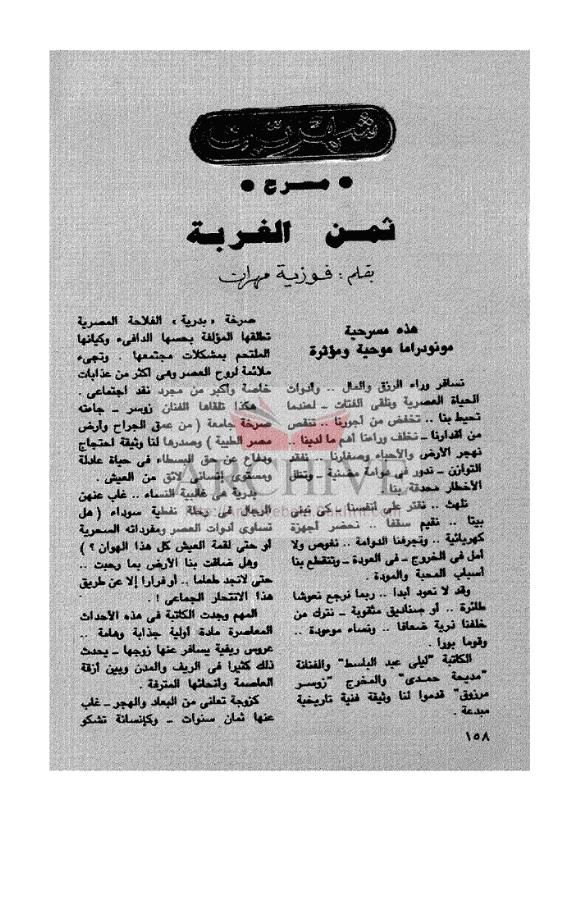 شهريات
• مسرح •
ثمن الغربة
بقلم : فوزية مهران
هذه مسرحية
مونودراما موحية ومؤثرة
نسافر وراء الرزق والمال .. وأدوات
الحياة العصرية ونلقى الفتات ـ عندما
تحيط بنا .. تخفض من أجورنا .. تنقص
من أقدارنا ـ نخلف وراءنا أهم ما لدينا ..
نهجر الأرض والأحياء وصغارنا .. نفقد
التوازن ـ ندور فى دوامة مضنية ـ وتظل
الأخطار محدقة بنا .
نلهث .. نقتر على أنفسنا ـ كى نبنى
بيتا .. نقيم سقفا .. نحضر أجهزة
كهربائية .. وتجرفنا الدوامة .. نغوص ولا
أمل فى الخروج ـ فى العودة ـ وتنقطع بنا
أسباب المحبة والمودة .
وقد لا نعود أبدا .. ربما نرجع نعوشا
طائرة .. أو صناديق مثقوبة ـ نترك من
خلفنا ذرية ضعافا .. ونساء موءودة ..
وقوما بورا .
الكاتبة "ليلى عبد الباسط" والفنانة
"مديحة حمدى" والمخرج "زوسر
مرزوق" قدموا لنا وثيقة فنية تاريخية
مبدعة .
صرخة «بدرية» الفلاحة المصرية
تطلقها المؤلفة بحسها الدافىء وكيانها
الملتحم بمشكلات مجتمعها . وتجىء
ملائمة لروح العصر وهى أكثر من عذابات
خاصة وأكبر من مجرد نقد اجتماعى .
هكذا تلقاها الفنان زوسر ـ جاءته
صرخة جامعة ( من عمق الجراح وأرض
مصر الطيبة ) وصدرها لنا وثيقة احتجاج
ودفاع عن حق البسطاء فى حياة عادلة
ومستوى إنسانى لائق من العيش .
بدرية هى غالبية النساء .. غاب عنهن
الرجال فى رحلة نفطية سوداء ( هل
تساوى أدوات العصر ومفرداته السحرية
أو حتى لقمة العيش كل هذا الهوان ؟ )
وهل ضاقت بنا الأرض بما رحبت ..
حتى لا نجد طعاما .. أو فرارا إلا عن طريق
هذا الانتحار الجماعى ! .
المهم وجدت الكاتبة فى هذه الأحداث
المعاصرة مادة أولية جذابة وهامة ..
عروس ريفية يسافر عنها زوجها ـ يحدث
ذلك كثيرا فى الريف والمدن وبين أزقة
العاصمة وأنحائها المترفة .
كزوجة تعانى من البعاد والهجر ـ غاب
عنها ثمان سنوات ـ وكإنسانة تشكو
١٥٨
ARCHIVE